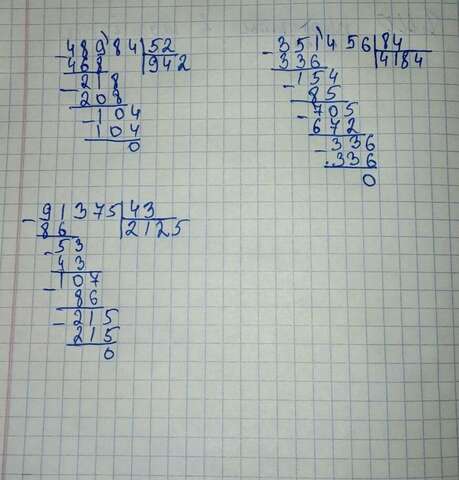 48984 | 52
468 | 942
- 218
208
- 104
104
0
- 351456 | 84
336 | 4184
- 154
85
- 705
672
- 336
336
0
- 91375 | 43
86 | 2125
- 53
43
- 107
86
- 215
215
0